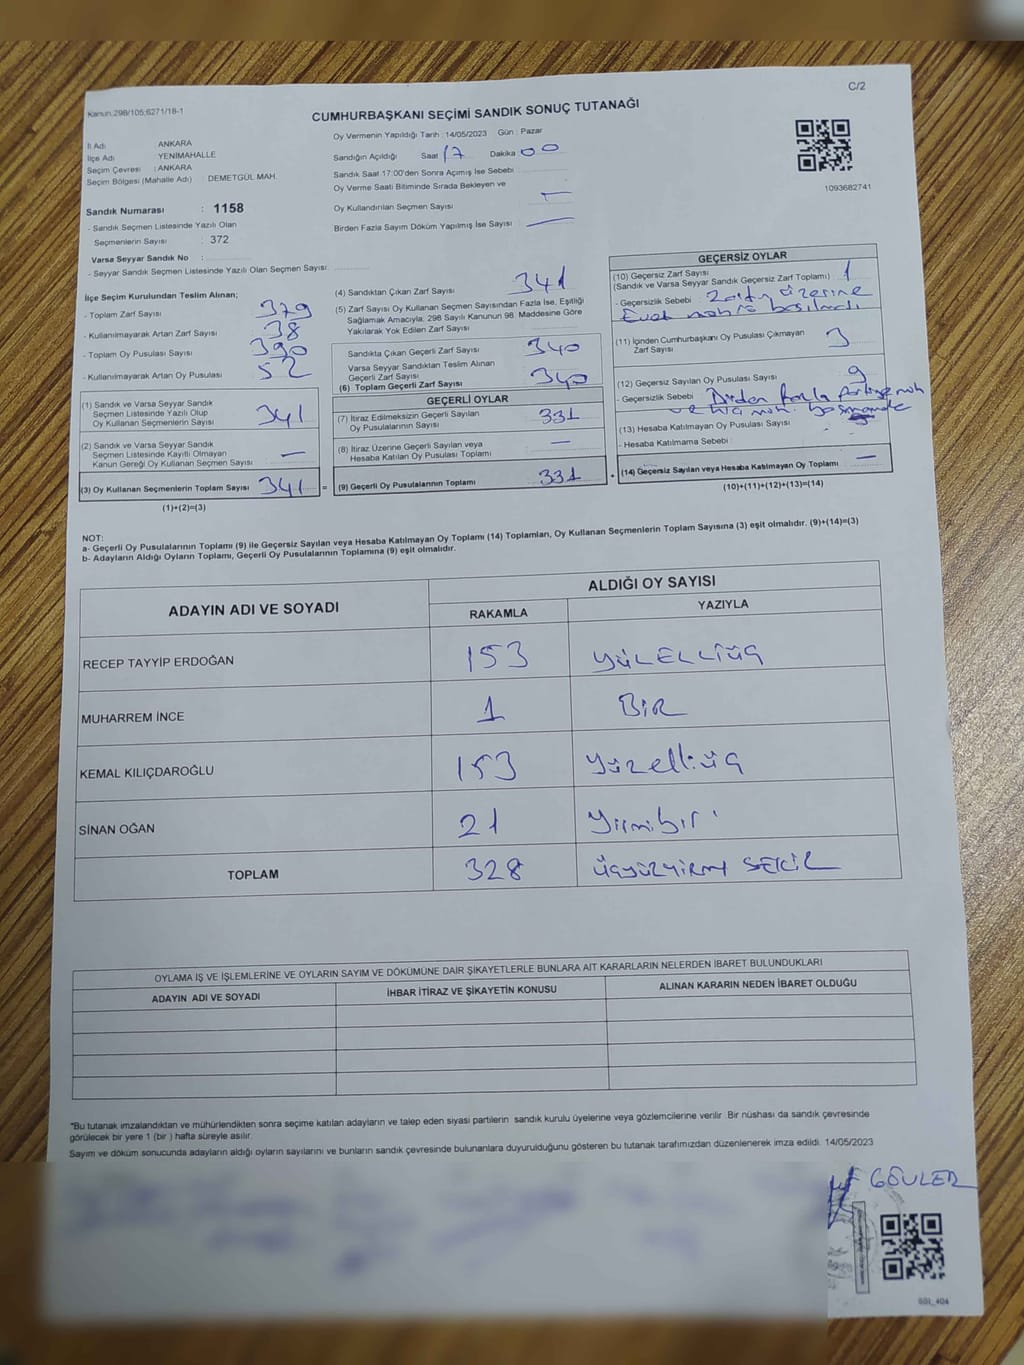 C/2
Kanun:298/105;6271/18-1
CUMHURBAŞKANI SEÇİMİ SANDIK SONUÇ TUTANAĞI
İl Adı ANKARA
İlçe Adı YENİMAHALLE
Seçim Çevresi : ANKARA
Seçim Bölgesi (Mahalle Adı) : DEMETGÜL MAH.
Oy Vermenin Yapıldığı Tarih : 14/05/2023 Gün : Pazar
Sandığın Açıldığı Saat 17 Dakika 00
Sandık Saat 17:00'den Sonra Açımış İse Sebebi
Oy Verme Saati Bitiminde Sırada Bekleyen ve
Oy Kullandırılan Seçmen Sayısı —
Birden Fazla Sayım Döküm Yapılmış İse Sayısı —
1093682741
Sandık Numarası : 1158
- Sandık Seçmen Listesinde Yazılı Olan
Seçmenlerin Sayısı : 372
Varsa Seyyar Sandık No :
- Seyyar Sandık Seçmen Listesinde Yazılı Olan Seçmen Sayısı:
İlçe Seçim Kurulundan Teslim Alınan;
- Toplam Zarf Sayısı 379
- Kullanılmayarak Artan Zarf Sayısı 38
- Toplam Oy Pusulası Sayısı 390
- Kullanılmayarak Artan Oy Pusulası 52
(1) Sandık ve Varsa Seyyar Sandık
Seçmen Listesinde Yazılı Olup
Oy Kullanan Seçmenlerin Sayısı 341
(2) Sandık ve Varsa Seyyar Sandık
Seçmen Listesinde Kayıtlı Olmayan
Kanun Gereği Oy Kullanan Seçmen Sayısı —
(3) Oy Kullanan Seçmenlerin Toplam Sayısı 341 =
(1)+(2)=(3)
(4) Sandıktan Çıkan Zarf Sayısı 341
(5) Zarf Sayısı Oy Kullanan Seçmen Sayısından Fazla İse, Eşitliği
Sağlamak Amacıyla, 298 Sayılı Kanunun 98. Maddesine Göre
Yakılarak Yok Edilen Zarf Sayısı
Sandıkta Çıkan Geçerli Zarf Sayısı 340
Varsa Seyyar Sandıktan Teslim Alınan
Geçerli Zarf Sayısı
(6) Toplam Geçerli Zarf Sayısı 340
GEÇERLİ OYLAR
(7) İtiraz Edilmeksizin Geçerli Sayılan
Oy Pusulalarının Sayısı 331
(8) İtiraz Üzerine Geçerli Sayılan veya
Hesaba Katılan Oy Pusulası Toplamı —
(9) Geçerli Oy Pusulalarının Toplamı 331 +
GEÇERSİZ OYLAR
(10) Geçersiz Zarf Sayısı 1
(Sandık ve Varsa Seyyar Sandık Geçersiz Zarf Toplamı)
- Geçersizlik Sebebi üzerine
Evet
(11) İçinden Cumhurbaşkanı Oy Pusulası Çıkmayan
Zarf Sayısı 3
(12) Geçersiz Sayılan Oy Pusulası Sayısı 9
- Geçersizlik Sebebi Birden fazla
ve
(13) Hesaba Katılmayan Oy Pusulası Sayısı
- Hesaba Katılmama Sebebi
(14) Geçersiz Sayılan veya Hesaba Katılmayan Oy Toplamı —
(10)+(11)+(12)+(13)=(14)
NOT:
a- Geçerli Oy Pusulalarının Toplamı (9) ile Geçersiz Sayılan veya Hesaba Katılmayan Oy Toplamı (14) Toplamları, Oy Kullanan Seçmenlerin Toplam Sayısına (3) eşit olmalıdır. (9)+(14)=(3)
b- Adayların Aldığı Oyların Toplamı, Geçerli Oy Pusulalarının Toplamına (9) eşit olmalıdır.
ADAYIN ADI VE SOYADI ALDIĞI OY SAYISI
RAKAMLA YAZIYLA
RECEP TAYYİP ERDOĞAN 153 YÜZELLİÜÇ
MUHARREM İNCE 1 BİR
KEMAL KILIÇDAROĞLU 153 Yüzelliüç
SİNAN OĞAN 21 Yirmibir
TOPLAM 328 ÜÇYÜZYİRMİ SEKİZ
OYLAMA İŞ VE İŞLEMLERİNE VE OYLARIN SAYIM VE DÖKÜMÜNE DAİR ŞİKAYETLERLE BUNLARA AİT KARARLARIN NELERDEN İBARET BULUNDUKLARI
ADAYIN ADI VE SOYADI İHBAR İTİRAZ VE ŞİKAYETİN KONUSU ALINAN KARARIN NEDEN İBARET OLDUĞU
*Bu tutanak imzalandıktan ve mühürlendikten sonra seçime katılan adayların ve talep eden siyasi partilerin sandık kurulu üyelerine veya gözlemcilerine verilir. Bir nüshası da sandık çevresinde
görülecek bir yere 1 (bir ) hafta süreyle asılır.
Sayım ve döküm sonucunda adayların aldığı oyların sayılarını ve bunların sandık çevresinde bulunanlara duyurulduğunu gösteren bu tutanak tarafımızdan düzenlenerek imza edildi. 14/05/2023